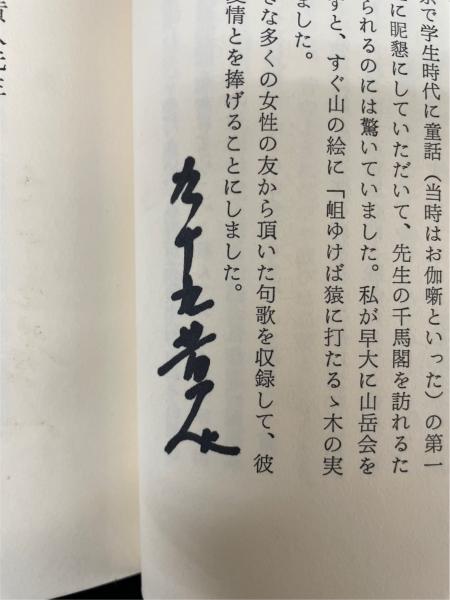 で学生時代に童話（当時はお伽噺といった）の第一
に昵懇にしていただいて、先生の千馬閣を訪れるた
られるのには驚いていました。私が早大に山岳会を
ずと、すぐ山の絵に「岨ゆけば猿に打たるゝ木の実
ました。
きな多くの女性の友から頂いた句歌を収録して、彼
愛情とを捧げることにしました。
九十九黄人